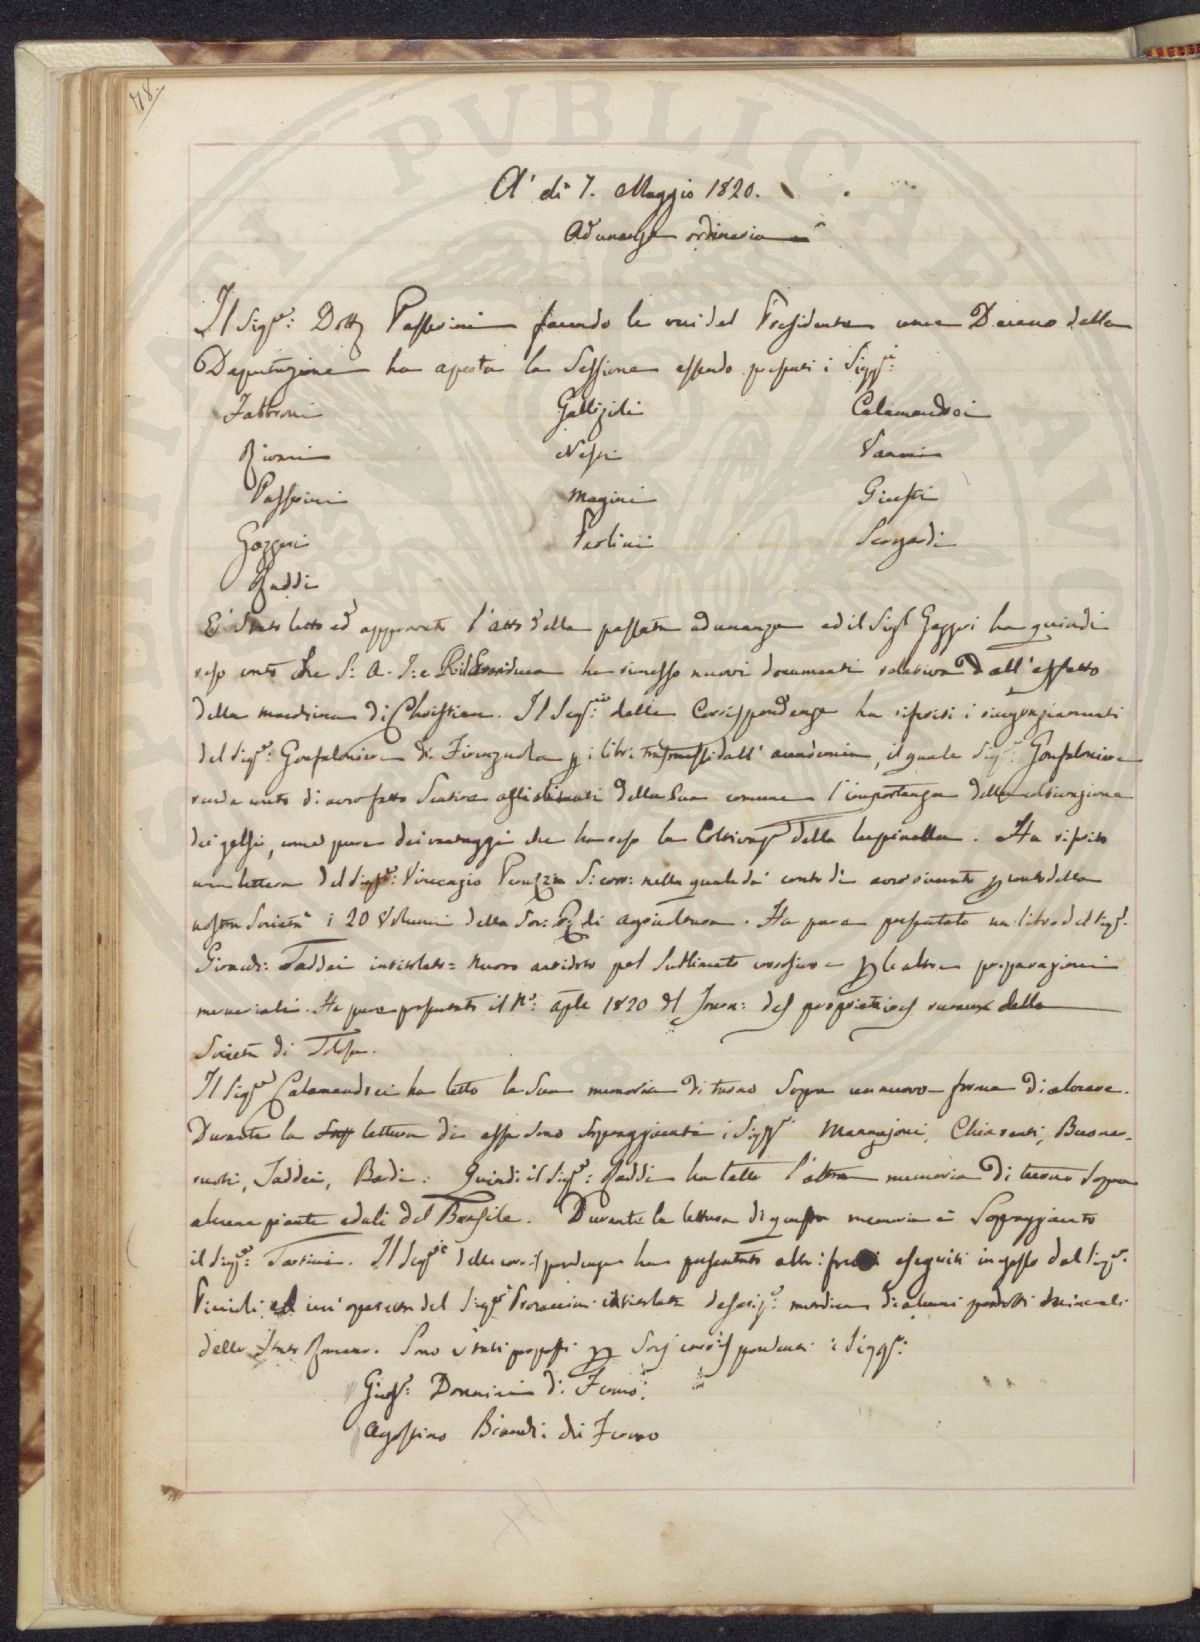 78.
A' di 7. Maggio 1820.
Adunanza ordinaria
Il Sigre: Dott Passerini facendo le veci del Presidente come Decano della
Deputazione ha aperta la Sessione essendo presenti i Sigg.i:
Fabbroni Gallizioli Calamandrei
Nesti Vanni
Passerini Magini Giusti
Gazzeri Paolini
Raddi
E' stato letto ed approvato l'atto della passata adunanza ed il Sigr Gazzeri ha quindi
reso conto che S: A: I: e R: il Granduca ha rimesso nuovi documenti dall'effetto
della macchina di Christian. Il Segrio: delle Corrispondenze ha riferiti i ringraziamenti
del Sigre: Gonfaloniere di Firenzuola p i libri trasmessi dall'accademia, il quale Sigr: Gonfaloniere
rende conto di aver fatto sentire agli abitanti della Sua comune l'importanza della coltivazione
dei gelsi, come pure dei vantaggi che ha reso la Coltivaze della lupinella. Ha riferito
una lettera del Sigre: Vincenzio Peruzzi S: corr: nella quale dà conto di aver ricevuto p conto della
nostra Società i 20 Volumi della Soc: R: di agricoltura. Ha pure presentato un libro del Sigr.
Taddei intitolato = Nuovo antidoto pel Sublimato corrosivo e p le altre preparazioni
mercuriali. Ha pure presentato il No: aple 1820 del Jour: des propriétaires ruraux della
Società di Tolosa.
Il Sigre Calamandrei ha letto la Sua memoria di turno Sopra un nuovo forma di alveare.
Durante la lettura di essa sono sopraggiunti i Sigg.i Mannajoni, Chiarenti, Buonar-
ruoti, Taddei, Quindi il Sigre: Raddi ha letto l'altra memoria di turno Sopra
alcune piante eduli del Brasile. Durante la lettura di questa memoria è Sopraggiunto
il Sigre: Tartini. Il Segrio delle corrispondenze ha presentato altri eseguiti in gesso dal Sigr.
ed un'operetta del Sigre intitolata descrize: medica di alcuni prodotti minerali
dello Stato Romano. Sono stati proposti p Socj corrispondenti i Sigg.i:
Giuse: Domenici di
Agostino Biondi di